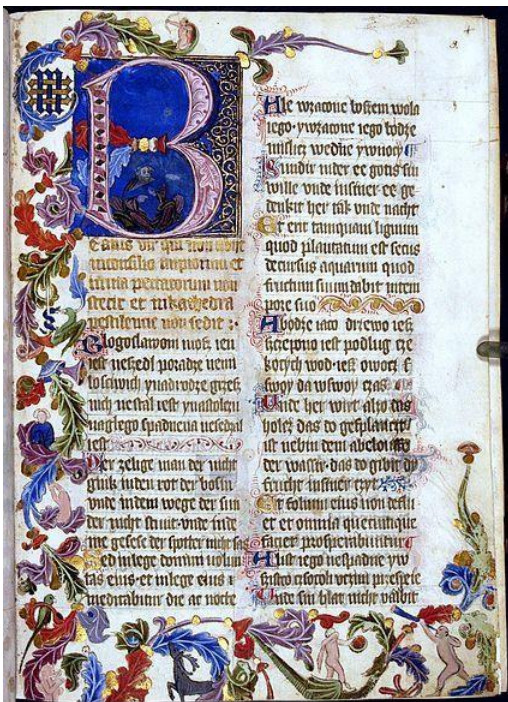 B
eatus vir qui non abijt
in consilio impiorum et
in via peccatorum non
stetit et in kathedra
pestilencie non sedit :
Blogoslawoni mosz ien
iest neszedl poradze nemi
losciwich ynadrodze grzesz
nich nestal iest ynastolczu
naglego spadnena nesedzal
iest
Der zelige man der nicht
gink in den rot der bosin
vnde in dem wege der sun
der nicht stuit · vnde in de
me gesese der spotter nicht sas
Sed in lege domini volun
tas eius · et in lege eius
meditabitur die ac nocte
Ale wzacone boszem wola
iego · y wzacone iego bodze
mislicz wednie ywnocy
Sundir in der ee gotis sin
wille vnde in siner ee ge
denkit her tak vnde nacht
Et erit tamquam lignum
quod plantatum est secus
decursus aquarum quod
fructum suum dabit in tem
pore suo
A bodze iaco drzewo iesz
szczepono iest podlug cze
kocych wod · iesz owocz
swoy da wswoy czas
Unde her wirt also das
holcz das do gesplanczit
ist nebin dem abeloufe
der wasser · das do gibit
frucht in siner czyt
Et folium eius non deflu
et et omnia quecumque
faciet prosperabuntur
A list iego nespadne yw
szistko czsokoli uczyni prespeie
Unde sin blat nicht valbit